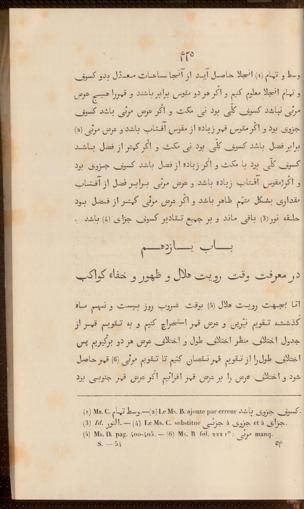 ۴۲۵
وسط و تمام (1) انجلا حاصل آید از آنجا ساعات معدّل بدو کسوف
و تمام انجلا معلوم کنیم و اگر هر دو مقوس برابر باشند و قمررا هیچ عرض
مرئی نباشد کسوف کلّی بود نی مکث و اگر عرض مرئی باشد کسوف
جزوی بود و اگر مقوس قمر زیاده از مقوس آفتاب باشد و عرض مرئی (2)
برابر فصل باشد کسوف کلّی بود نی مکث و اگر کمتر از فصل باشد
کسوف کلّی بود با مکث و اگر زیاده از فصل باشد کسوف جزوی بود
و اگر مقوس آفتاب زیاده باشد و عرض مرئی برابر فصل از آفتاب
مقداری بشکل متمّم ظاهر باشد و اگر عرض مرئی کمتر از فصل بود
حلقه نور (3) باقی ماند و بر جمیع تقادیر کسوف جزای (4) باشد
باب یازدهم
در معرفت وقت رویت هلال و ظهور و خفاء کواکب
امّا بجهت رویت هلال (5) بوقت غروب روز بیست و نهم ماه
گذشته تقویم نیّرین و عرض قمر استخراج کنیم و به تقویم قمر از
جدول اختلاف منظر اختلاف طول و اختلاف عرض هر دو برگیریم پس
اختلاف طول را از تقویم قمر نقصان کنیم تا تقویم مرئی (6) قمر حاصل
شود و اختلاف عرض را بر عرض قمر افزائیم اگر عرض قمر جنوبی بود
(1) Ms. C. وسط وتمام.—(2) Le Ms. B. ajoute par erreur کسوف جزوی باشد.
(3) Id. النور. — (4) Le Ms. C. substitue جزئی à جزوی et à جزای.
(5) Ms. D. pag. 400-405. — (6) Ms. B fol. xxi rº: مرئی manq.
S. — 54